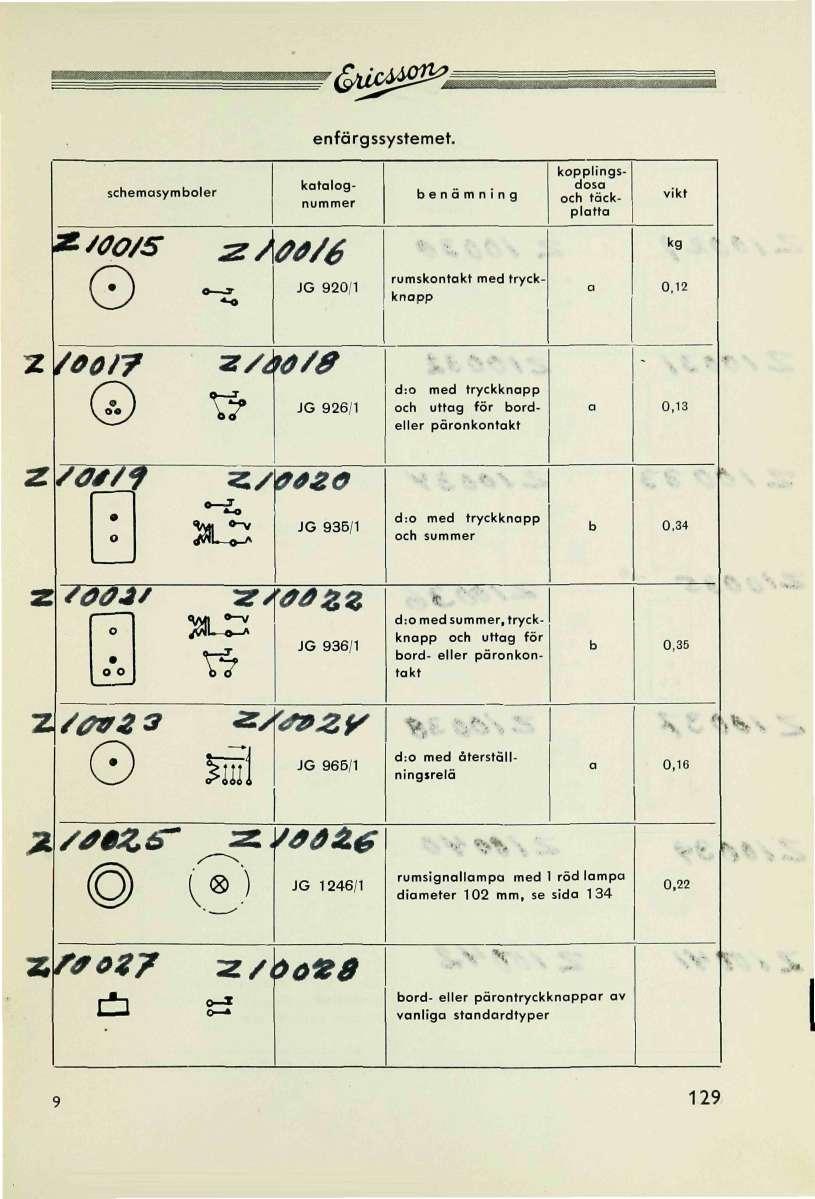 Ericsson
enfärgssystemet.
schemasymboler
katalog-
nummer
benämning
kopplings-
dosa
och täck-
platta
vikt
kg
Z10015 Z10016
JG 920/1
rumskontakt med tryck-
knapp
a
0,12
Z10017 Z10018
JG 926/1
d:o med tryckknapp
och uttag för bord-
eller päronkontakt
a
0,13
Z10019 Z10020
JG 935/1
d:o med tryckknapp
och summer
b
0,34
Z10021 Z10022
JG 936/1
d:o med summer, tryck-
knapp och uttag för
bord- eller päronkon-
takt
b
0,35
Z10023 Z10024
JG 965/1
d:o med återställ-
ningsrelä
a
0,16
Z10025 Z10026
JG 1246/1
rumsignallampa med 1 röd lampa
diameter 102 mm, se sida 134
0,22
Z10027 Z10028
bord- eller pärontryckknappar av
vanliga standardtyper
9
129